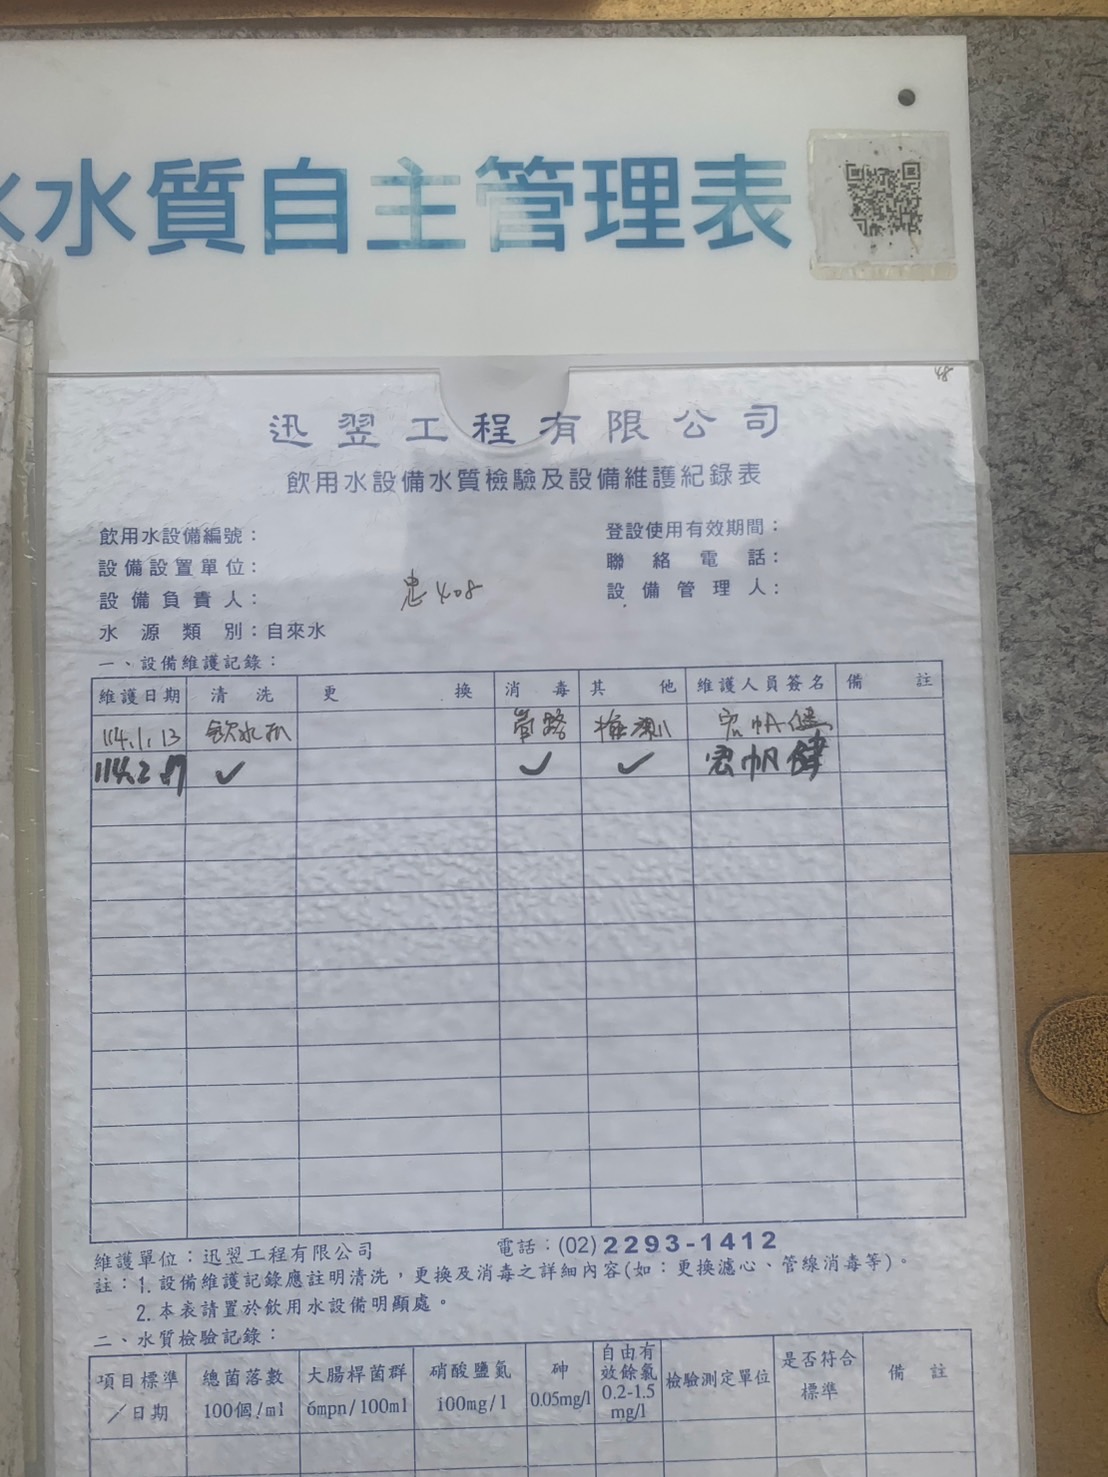 水質自主管理表
48
迅翌工程有限公司
飲用水設備水質檢驗及設備維護紀錄表
飲用水設備編號： 登設使用有效期間：
設備設置單位： 聯絡電話：
設備負責人： 忠408 設備管理人：
水源類別：自來水
一、設備維護記錄：
維護日期 清洗 更換 消毒 其他 維護人員簽名 備註
114.1.13 飲水机 管路 檢測 宏帆健
114.2 ✓ ✓ ✓ 宏帆健
維護單位：迅翌工程有限公司 電話：(02)2293-1412
註：1. 設備維護記錄應註明清洗，更換及消毒之詳細內容(如：更換濾心、管線消毒等)。
2. 本表請置於飲用水設備明顯處。
二、水質檢驗記錄：
項目標準／日期 總菌落數 100個/ml 大腸桿菌群 6mpn/100ml 硝酸鹽氮 100mg/l 砷 0.05mg/l 自由有效餘氯 0.2-1.5 mg/l 檢驗測定單位 是否符合標準 備註